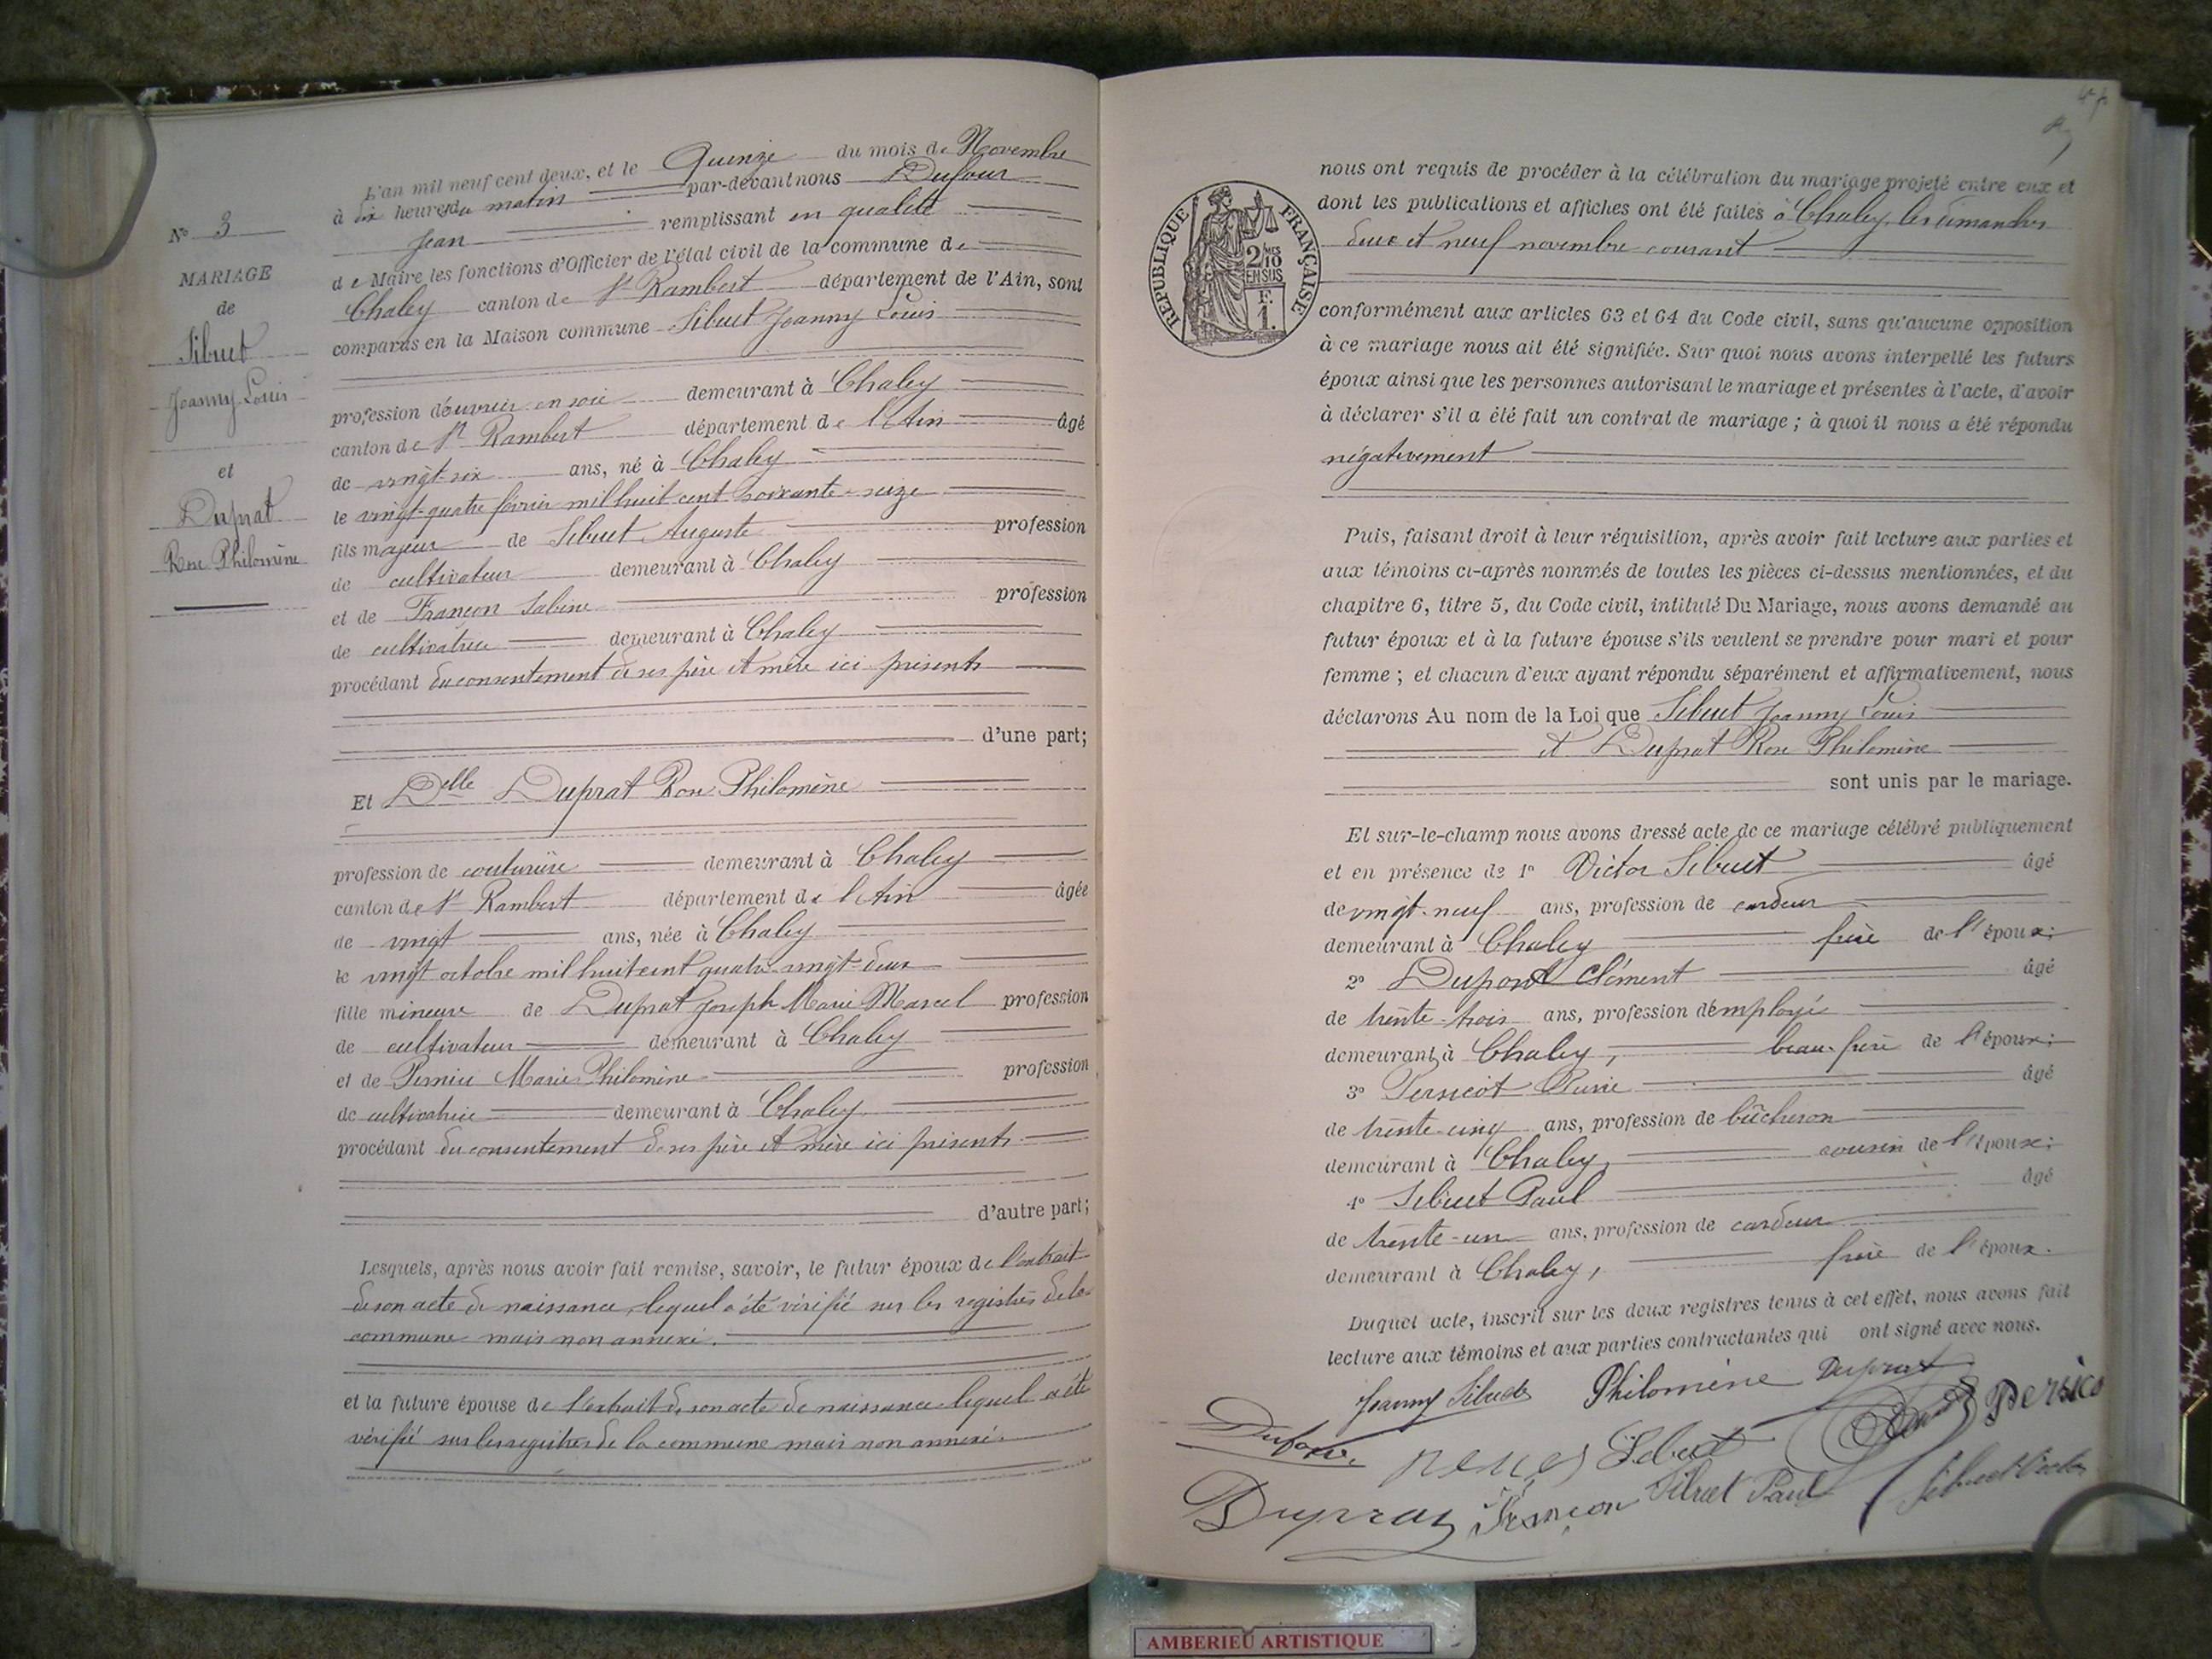 N° 3
MARIAGE
de
Sibuet
Joanny Louis
et
Duprat
Rose Philomène
L'an mil neuf cent deux, et le Quinze du mois de Novembre
à dix heures du matin par-devant nous Dufour
Jean remplissant en qualité
de Maire les fonctions d'Officier de l'état civil de la commune de
Chaley canton de St Rambert département de l'Ain, sont
comparus en la Maison commune Sibuet Joanny Louis
profession d'ouvrier en soie demeurant à Chaley
canton de St Rambert département de l'Ain âgé
de vingt-six ans, né à Chaley
le vingt-quatre février mil huit cent soixante-seize
fils majeur de Sibuet Auguste profession
de cultivateur demeurant à Chaley
et de Françon Sabine profession
de cultivatrice demeurant à Chaley
procédant du consentement de ses père et mère ici présents
d'une part;
Et Delle Duprat Rose Philomène
profession de couturière demeurant à Chaley
canton de St Rambert département de l'Ain âgée
de vingt ans, née à Chaley
le vingt octobre mil huit cent quatre-vingt-deux
fille mineure de Duprat Joseph Marie Marcel profession
de cultivateur demeurant à Chaley
et de Marie Philomène profession
de cultivatrice demeurant à Chaley
procédant du consentement de ses père et mère ici présents
d'autre part;
Lesquels, après nous avoir fait remise, savoir, le futur époux de l'extrait
de son acte de naissance, lequel a été vérifié sur les registres de la
commune mais non annexé.
et la future épouse de l'extrait de son acte de naissance lequel a été
vérifié sur les registres de la commune mais non annexé.
nous ont requis de procéder à la célébration du mariage projeté entre eux et
dont les publications et affiches ont été faites à Chaley, les dimanches
deux et neuf novembre courant
conformément aux articles 63 et 64 du Code civil, sans qu'aucune opposition
à ce mariage nous ait été signifiée. Sur quoi nous avons interpellé les futurs
époux ainsi que les personnes autorisant le mariage et présentes à l'acte, d'avoir
à déclarer s'il a été fait un contrat de mariage ; à quoi il nous a été répondu
négativement
Puis, faisant droit à leur réquisition, après avoir fait lecture aux parties et
aux témoins ci-après nommés de toutes les pièces ci-dessus mentionnées, et du
chapitre 6, titre 5, du Code civil, intitulé Du Mariage, nous avons demandé au
futur époux et à la future épouse s'ils veulent se prendre pour mari et pour
femme ; et chacun d'eux ayant répondu séparément et affirmativement, nous
déclarons Au nom de la Loi que Sibuet Joanny Louis
et Duprat Rose Philomène
sont unis par le mariage.
Et sur-le-champ nous avons dressé acte de ce mariage célébré publiquement
et en présence de 1° Victor Sibuet âgé
de vingt-neuf ans, profession de cardeur
demeurant à Chaley frère de l'époux;
2° Dupont Clément âgé
de trente-trois ans, profession d'employé
demeurant à Chaley, beau-frère de l'époux;
3° Persicot âgé
de trente-cinq ans, profession de bûcheron
demeurant à Chaley, cousin de l'épouse;
4° Sibuet Paul âgé
de trente-un ans, profession de cardeur
demeurant à Chaley, frère de l'époux.
Duquel acte, inscrit sur les deux registres tenus à cet effet, nous avons fait
lecture aux témoins et aux parties contractantes qui ont signé avec nous.
Joanny Sibuet Philomène Duprat
Dufour. Sibuet
Duprat Françon Sibuet Paul Sibuet Victor
RÉPUBLIQUE FRANÇAISE
2/10
EN SUS
F.
1.
AMBERIEU ARTISTIQUE